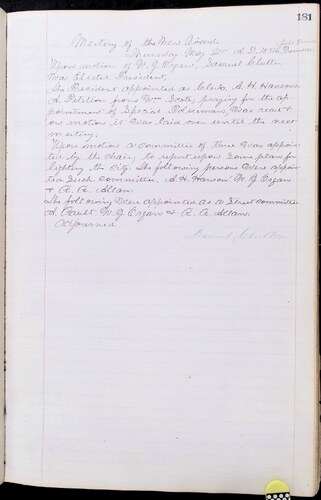 181
Meeting of the New Board
Thursday May A.D. 1886
Upon motion of W. J. Egan, Samuel
Was Elected President,
The President appointed as Clerk, A. H. Hanson
A Petition from Wm praying for the ap
pointment of Special Policeman, was read &
on motion it was laid over until the next
meeting.
Upon motion a committee of three was appoin
ted by the chair, to report upon some plan for
lighting the City. The following persons were appoin
ted Such Committee, A. H. Hanson W. J. Egan
& A. A. Allan.
The following were appointed as a Street committee
A. Gault W. J. Egan & A. A. Allan.
Adjourned
Samuel